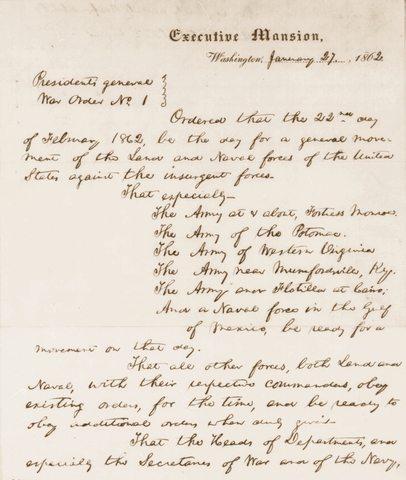 Executive Mansion,
Washington, January 27, 1862
Presidents general
War Order No 1
Ordered that the 22nd day
of February 1862, be the day for a general move-
ment of the Land and Naval forces of the United
States against the insurgent forces.
That especially—
The Army at & about, Fortress Monroe.
The Army of the Potomac.
The Army of Western Virginia
The Army near Mumfordsville, Ky.
The Army and Flotilla at Cairo.
And a Naval force in the Gulf
of Mexico, be ready for a
movement on that day.
That all other forces, both Land and
Naval, with their respective commanders, obey
existing orders, for the time, and be ready to
obey additional orders when duly given.
That the Heads of Departments, and
especially the Secretaries of War and of the Navy,